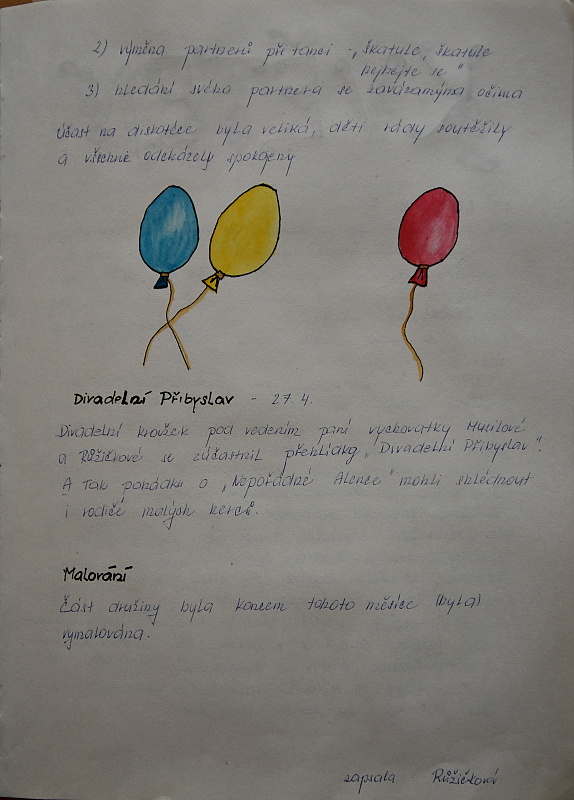 2) výměna partnerů při tanci - „škatule, škatule
hejbejte se"
3) hledání svého partnera se zavázanýma očima
Účast na diskotéce byla veliká, děti rády soutěžily
a všechně odcházely spokojeny
Divadelní Přibyslav - 27.4.
Divadelní kroužek pod vedením paní vychovatky Musilové
a Růžičkové se zúčastnil přehlídky „Divadelní Přibyslav".
A tak pohádku o „Nepořádné Alence" mohli shlédnout
i rodiče malých herců.
Malování
Část družiny byla koncem tohoto měsíce (byla)
vymalována.
zapsala Růžičková